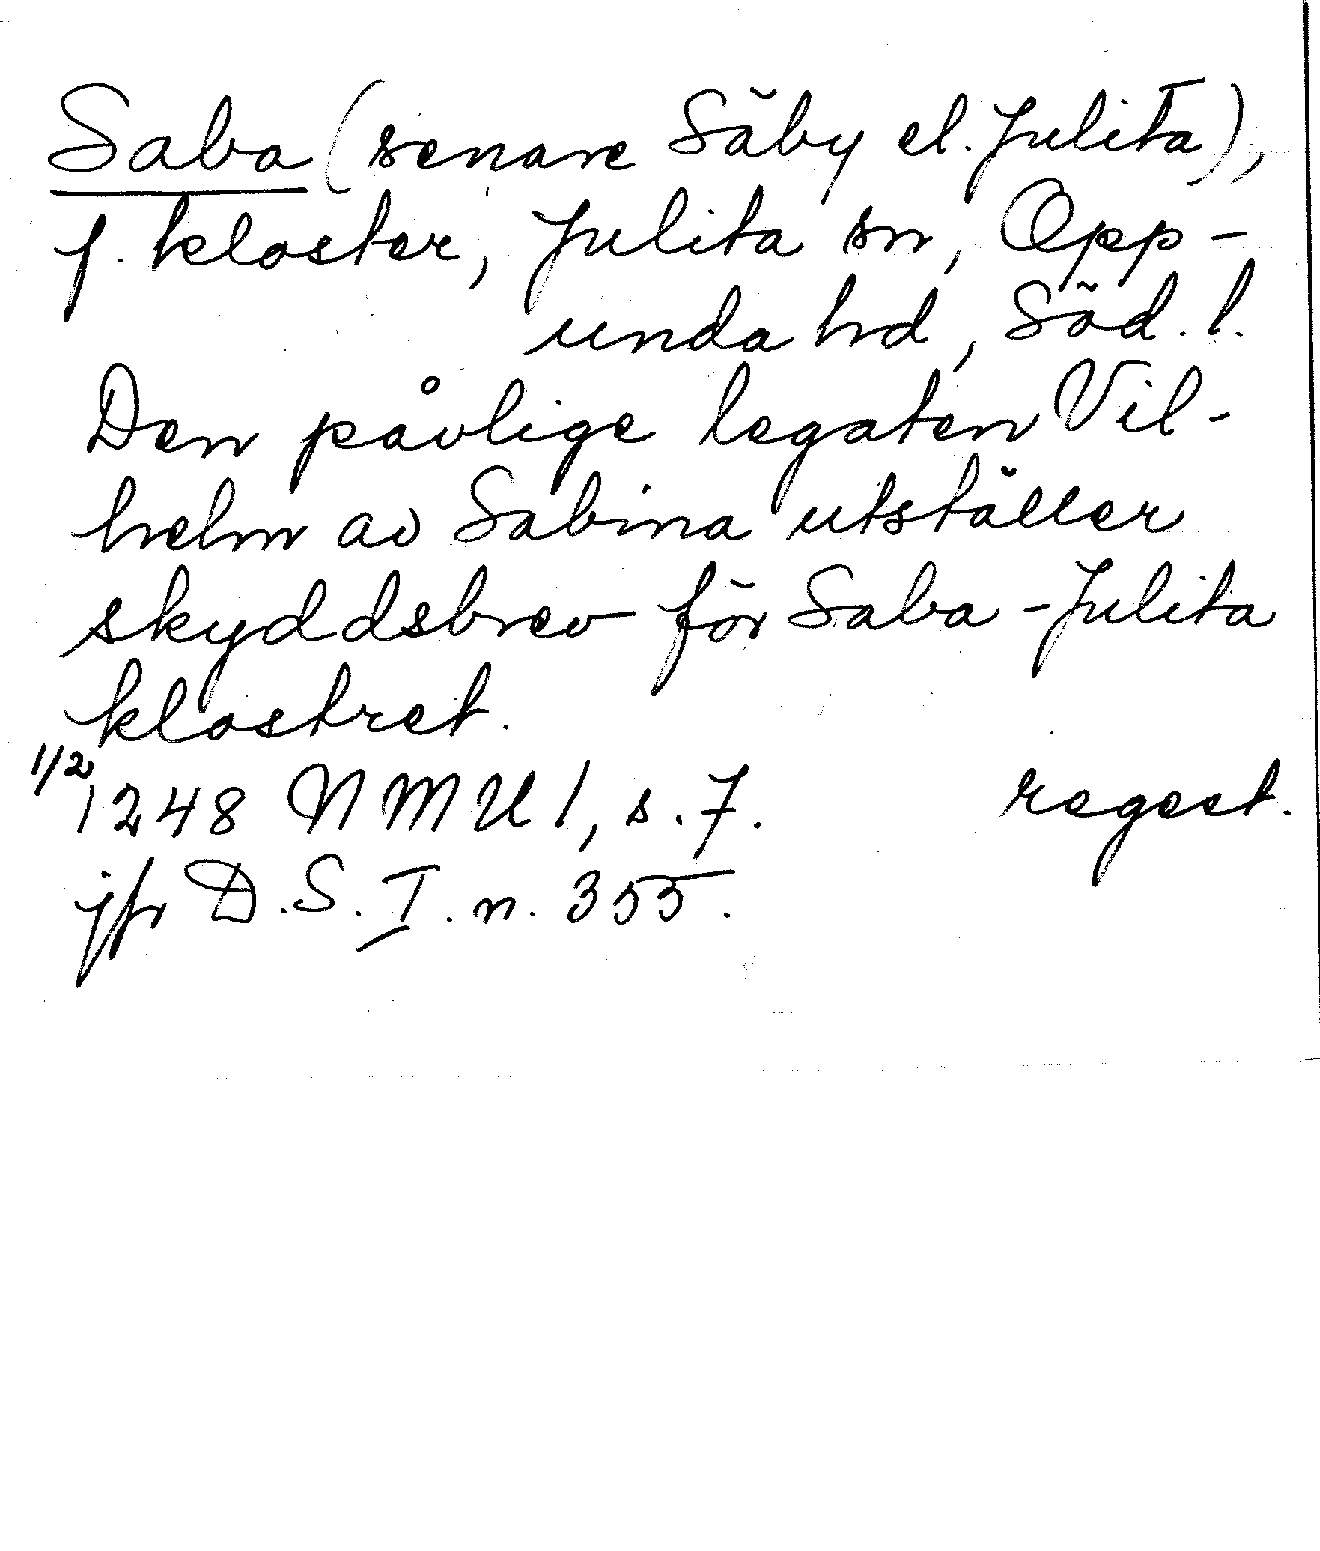 Saba (senare Säby el. Julita),
f. kloster, Julita sn, Opp-
unda hd, Söd. l.
Den påvlige legaten Vil-
helm av Sabina utställer
skyddsbrev för Saba-Julita
klostret.
1/2
1248 NMU 1, s. 7. regest.
jfr D.S. I. n. 355.